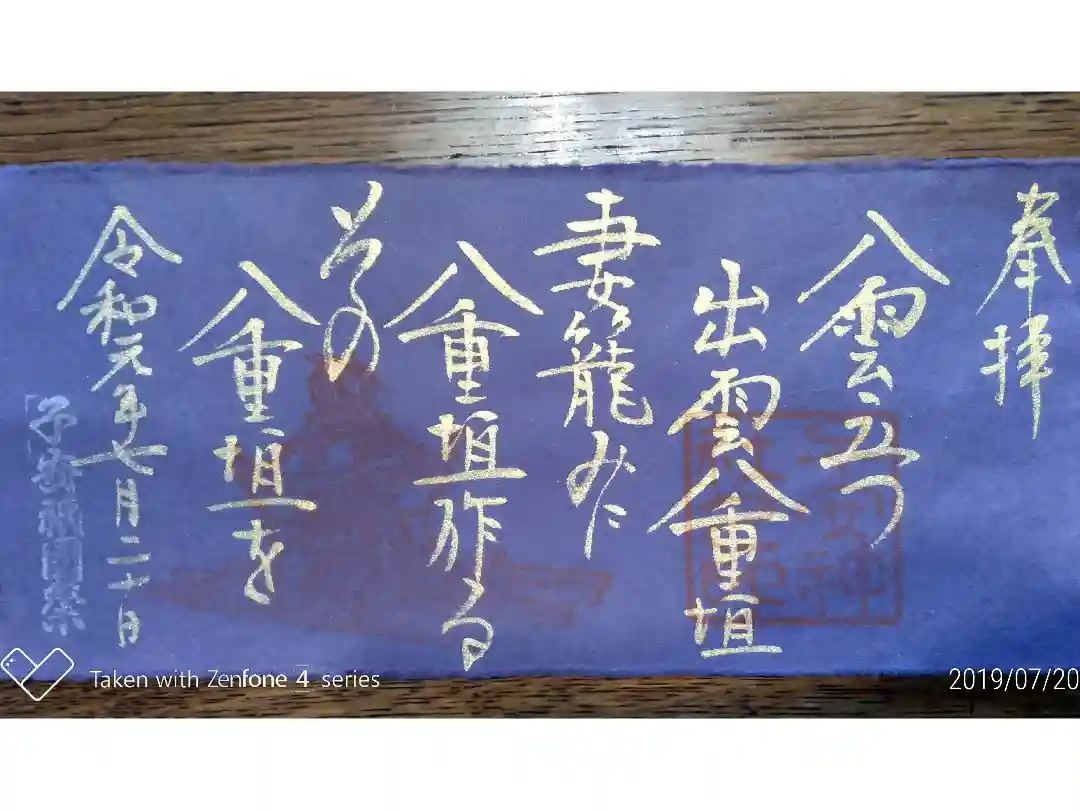 奉拝
八雲立つ
出雲八重垣
妻籠みに
八重垣作る
その
八重垣を
令和元年七月二十日
子安祇園祭
Taken with Zenfone 4 series
2019/07/20